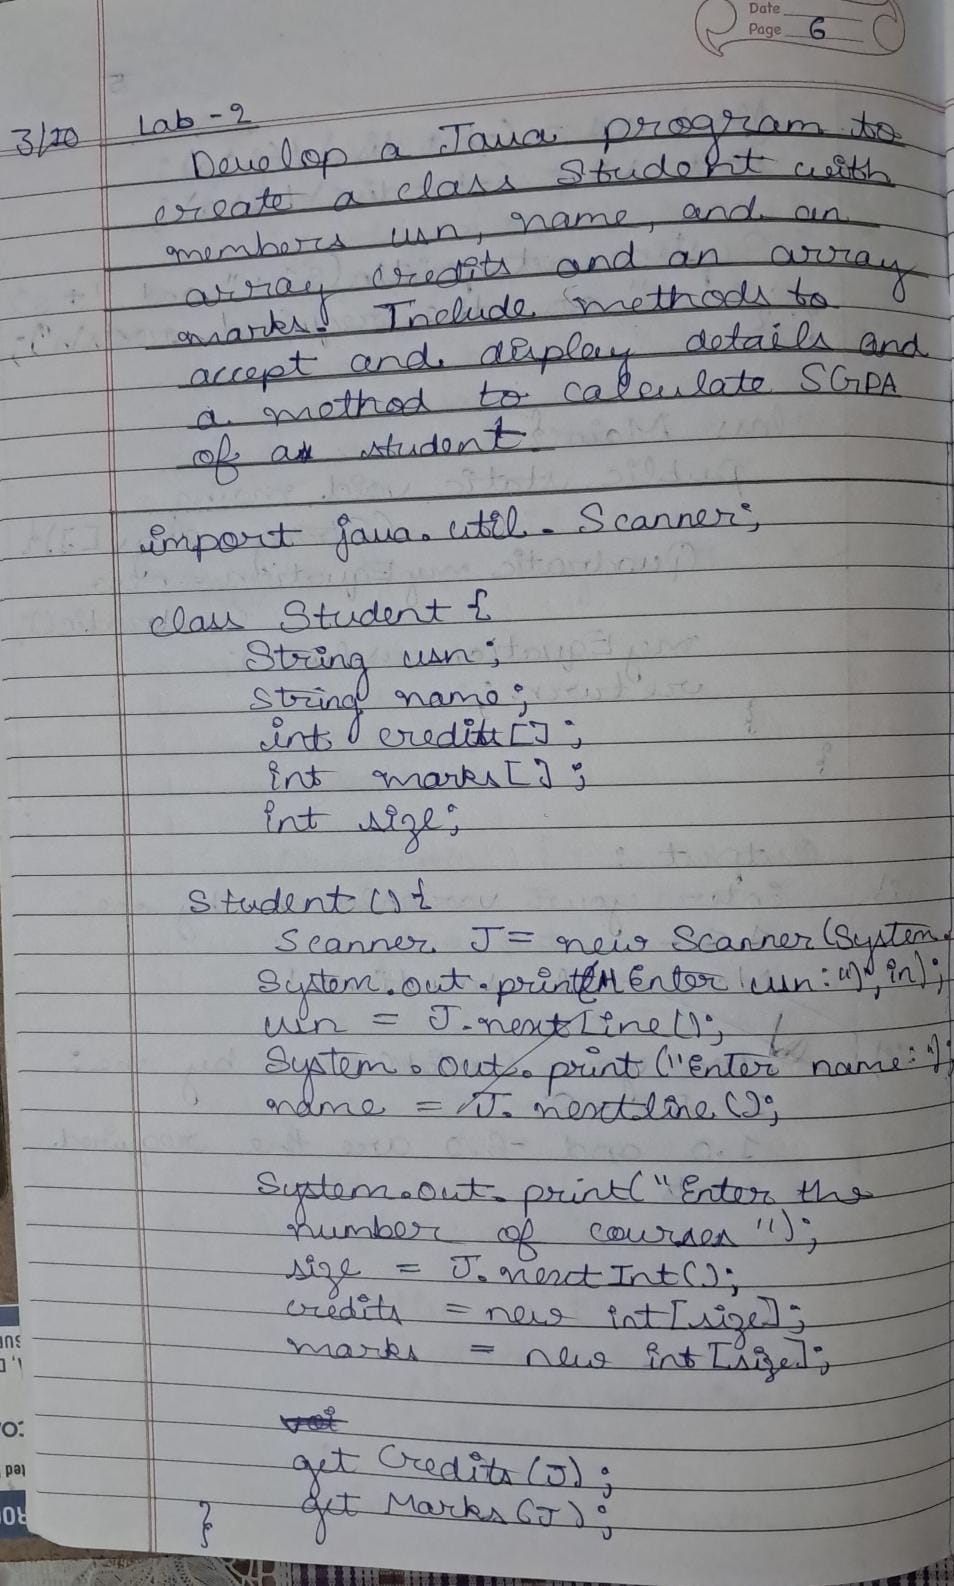 Date
Page 6
3/10 Lab - 2
Develop a Java program to
create a class Student with
members usn, name, and an
array credits and an array
marks. Include methods to
accept and display details and
a method to calculate SGPA
of a student
import java.util.Scanner;
class Student {
String usn;
String name;
int credits[];
int marks[];
int size;
Student () {
Scanner J = new Scanner(System.
System.out.print("Enter usn:"); in);
usn = J.nextLine();
System.out.print("Enter name:");
name = J.nextline();
System.out.print("Enter the
number of courses");
size = J.nextInt();
credits = new int[size];
marks = new int[size];
get Credits(J);
get Marks(J);
}